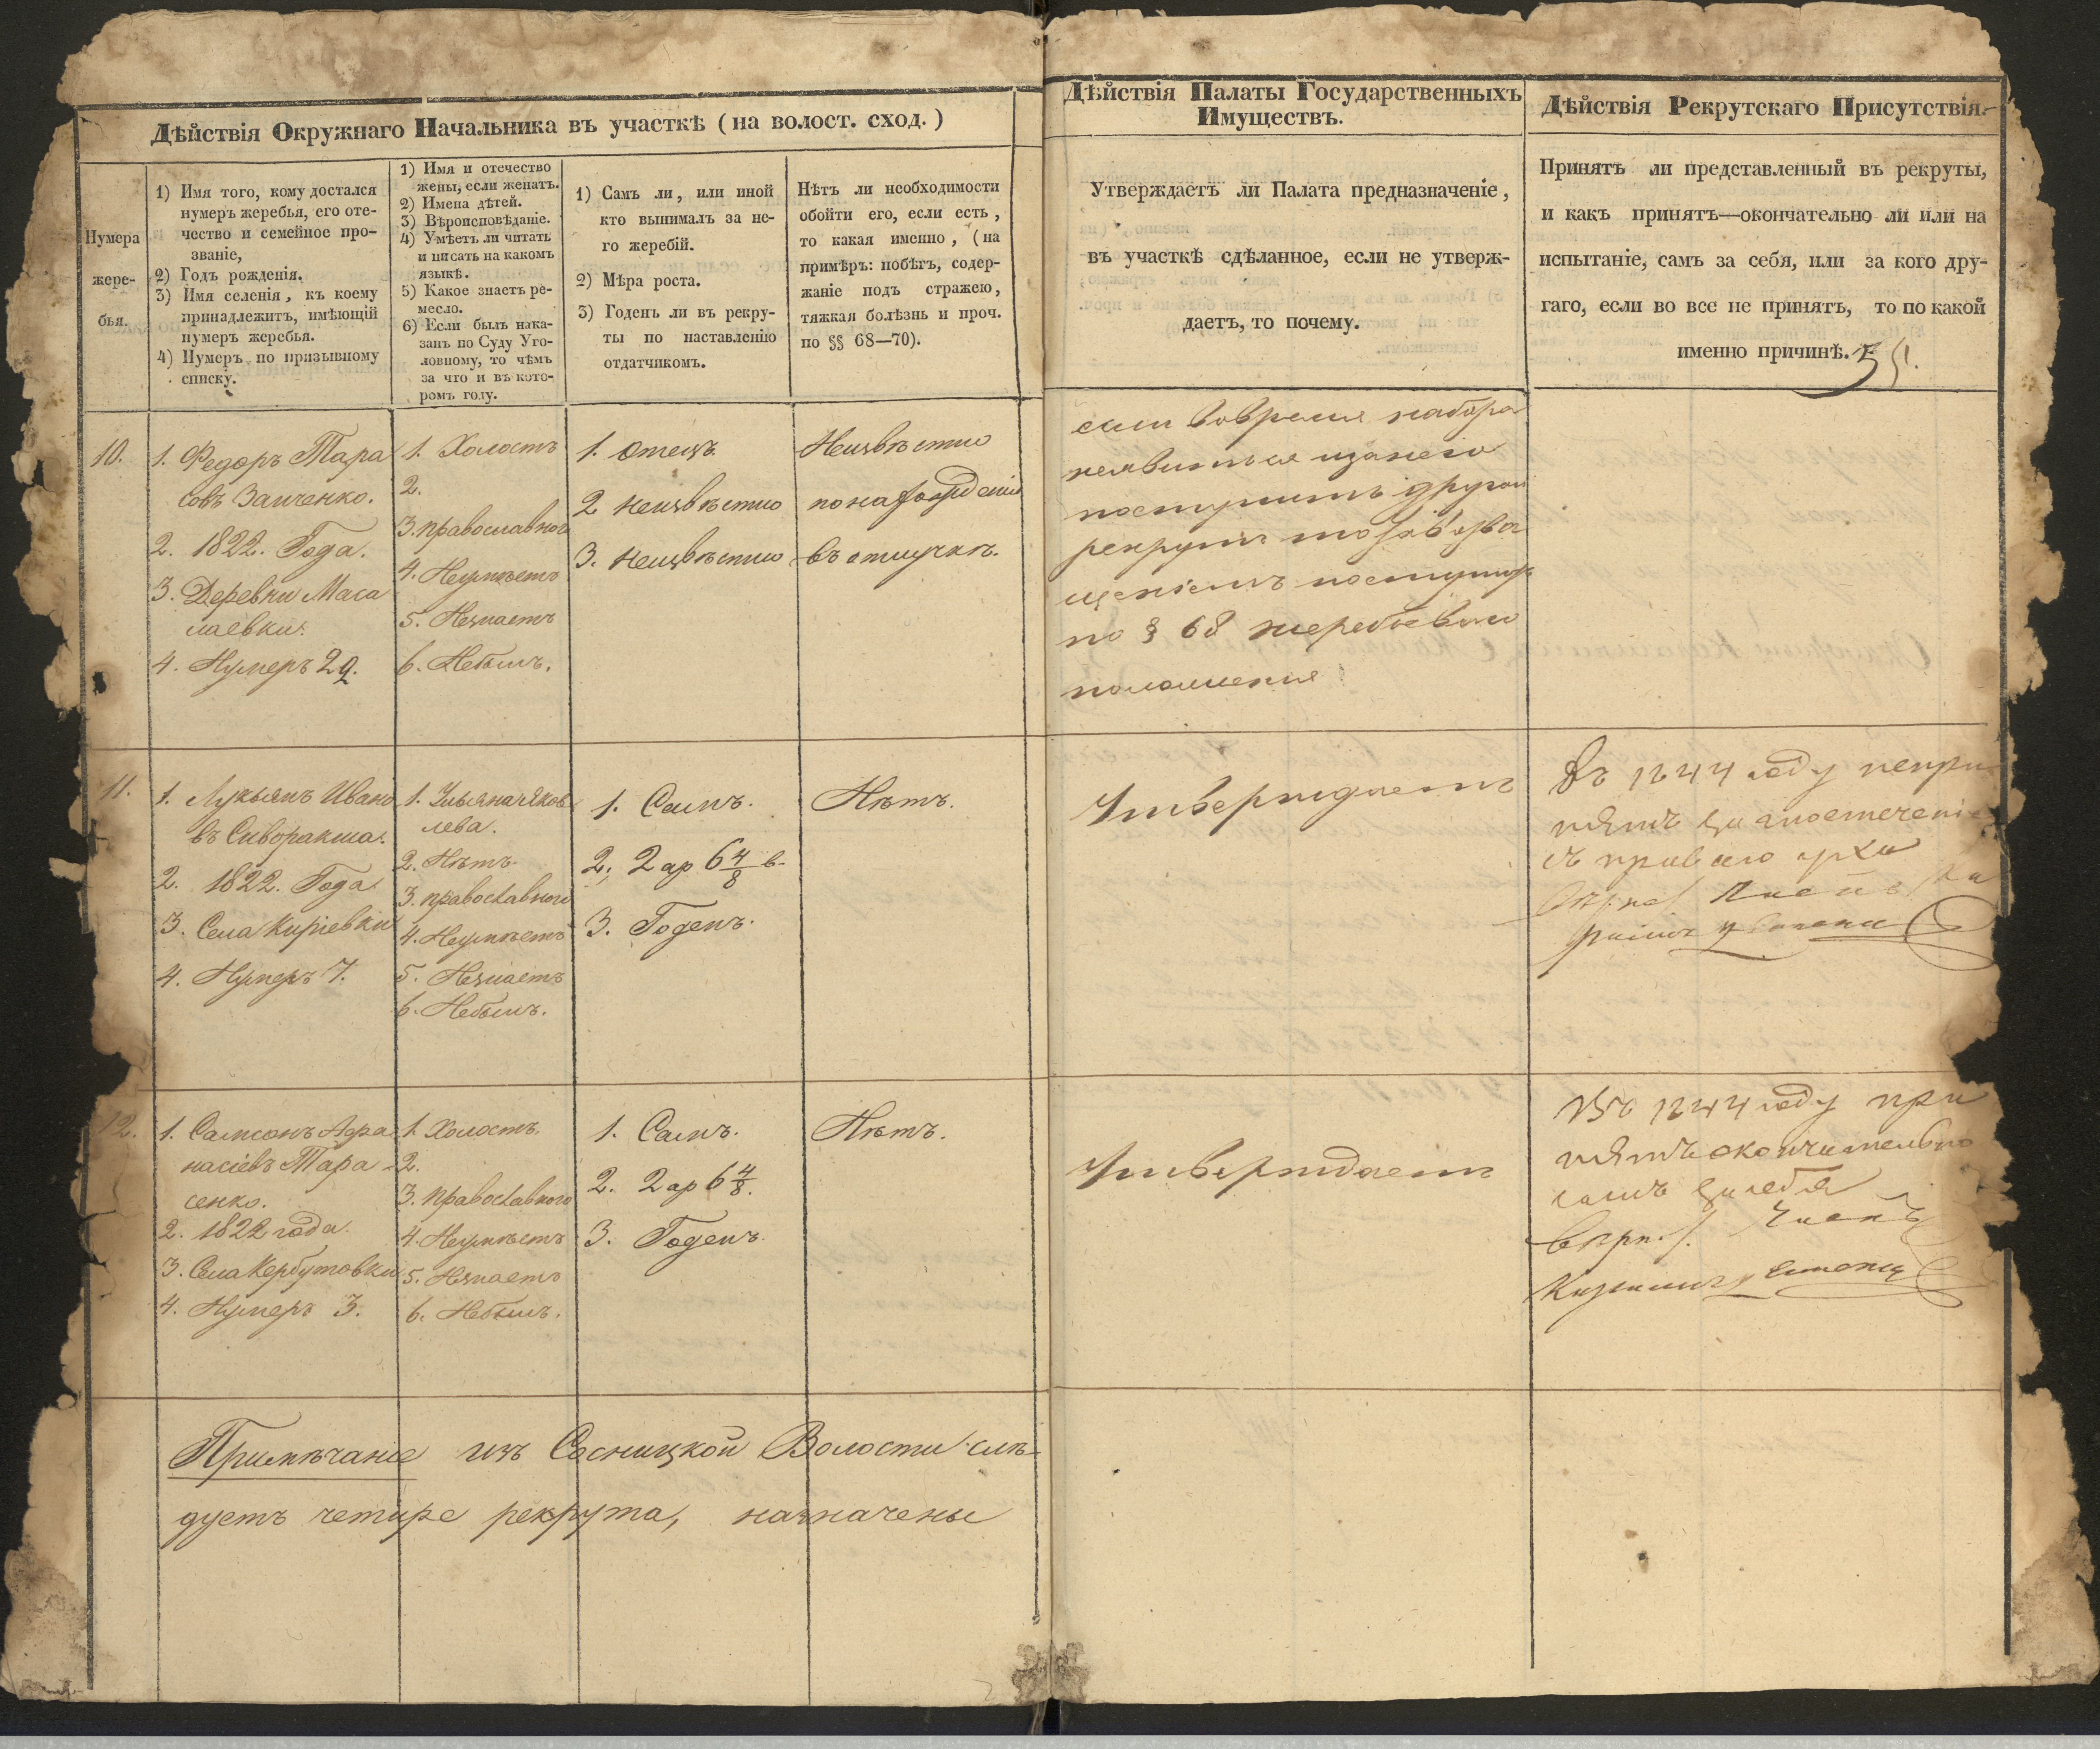 Дѣйствія Окружнаго Начальника въ участкѣ (на волост. сход.)
Нумера
жере-
бья.
1) Имя того, кому достался
нумеръ жеребья, его оте-
чество и семейное про-
званіе,
2) Годъ рожденія.
3) Имя селенія, къ коему
принадлежитъ, имѣющій
нумеръ жеребья.
4) Нумеръ по призывному
списку.
1) Имя и отечество
жены, если женатъ.
2) Имена дѣтей.
3) Вѣроисповѣданіе.
4) Умѣетъ ли читать
и писать на какомъ
языкѣ.
5) Какое знаетъ ре-
месло.
6) Если былъ нака-
занъ по Суду Уго-
ловному, то чѣмъ
за что и въ кото-
ромъ году.
1) Самъ ли, или иной
кто вынималъ за не-
го жеребій.
2) Мѣра роста.
3) Годенъ ли въ рекру-
ты по наставленію
отдатчикомъ.
Нѣтъ ли необходимости
обойти его, если есть,
то какая именно, (на
примѣръ: побѣгъ, содер-
жаніе подъ стражею,
тяжкая болѣзнь и проч.
по §§ 68—70).
Дѣйствія Палаты Государственныхъ
Имуществъ.
Утверждаетъ ли Палата предназначеніе,
въ участкѣ сдѣланное, если не утверж-
даетъ, то почему.
Дѣйствія Рекрутскаго Присутствія.
Принятъ ли представленный въ рекруты,
и какъ принятъ—окончательно ли или на
испытаніе, самъ за себя, или за кого дру-
гаго, если во все не принятъ, то по какой
именно причинѣ.
10.
1. Федоръ Тара
совъ Заиченко.
2. 1822. Года.
3. Деревни Маса
лаевки.
4. Нумеръ 29.
1. Холостъ
2.
3. православного
4. Неумѣетъ
5. Незнаетъ
6. Небылъ.
1. Отецъ.
2 неизвѣстно
3. неизвѣстно
Неизвѣстно
по нахожденію
въ отлучкѣ.
если вовремя набора
неявиться изанего
поступитъ другой
рекрутъ то
щеніемъ поступить
по § 68 жеребьеваго
положенія
11.
1. Лукьянъ Ивано
въ Сиворакша.
2. 1822. Года
3. Села Киріевки
4. Нумеръ 7.
1. Ульяна Яков
лева.
2. Нѣтъ.
3. православного
4. Неумѣетъ
5. Незнаетъ
6. Небылъ.
1. Самъ.
2. 2 ар 6 4/8 в.
3. Годенъ.
Нѣтъ.
Утверждаетъ
Въ 1844 году непри
нятъ за
съ праваго уха
12.
1. Самсонъ Афа
насіевъ Тара
сенко.
2. 1822 года.
3. Села Кербутовки
4. Нумеръ 3.
1. Холостъ.
2.
3. православного
4. Неумѣетъ
5. Незнаетъ
6. Небылъ.
1. Самъ.
2. 2 ар 6 4/8.
3. Годенъ.
Нѣтъ.
Утверждаетъ
Въ 1844 году при
нятъ окончательно
самъ за себя
Примѣчаніе изъ Сосницкой Волости слѣ-
дуетъ четыре рекрута, назначены